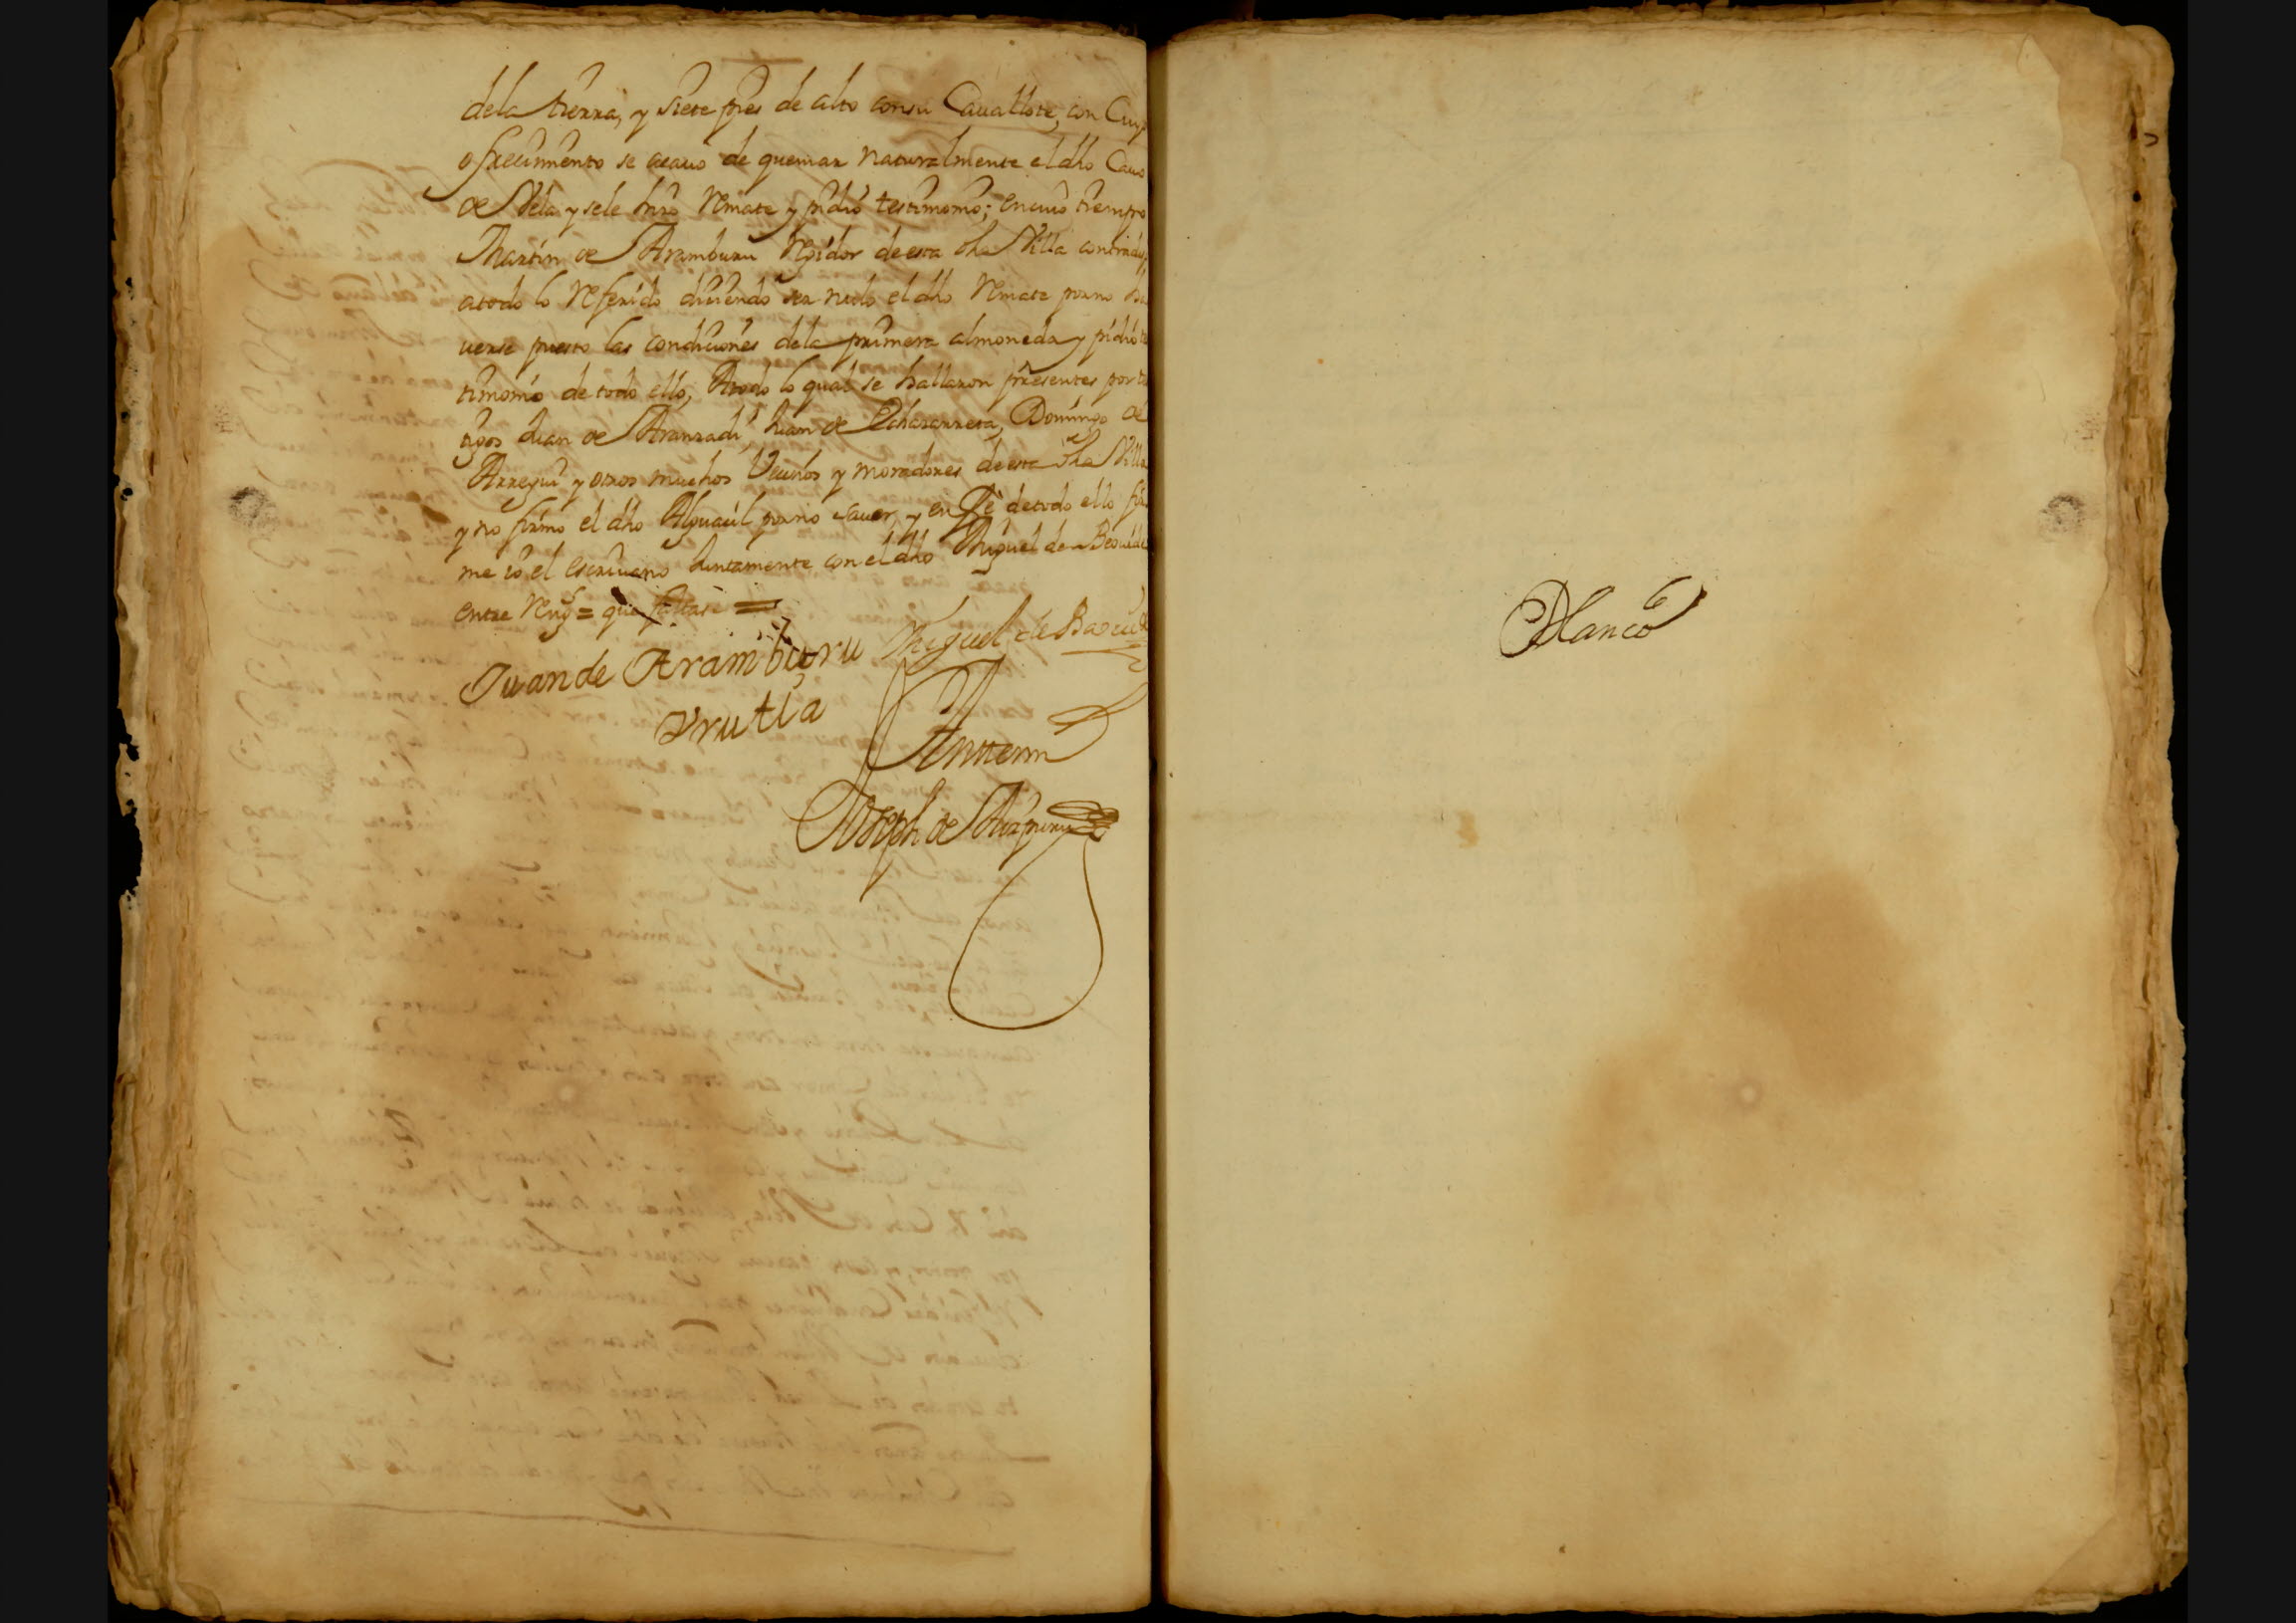 dela tierra, y siete pies de alto consu Cauallote, con Cuyo
ofrecimiento se acauo de quemar naturalmente el dho Cauo
de Vela y sele hizo Remate y pidio testimonio; en cuio tiempo
Martin de Aramburu Regidor de esta dha Villa contradijo
atodo lo Referido diciendo ser nulo el dho Remate porno ha
uerse puesto las condiciones dela primera almoneda y pidio tes
timonio de todo ello, Atodo lo qual se hallaron presentes por tes
tigos Juan de Aranzadi, Juan de Echazarreta, Domingo de
Arregui y otros muchos Vecinos y moradores de esta dha Villa
y no firmo el dho Alguacil porno sauer, y en Fe de todo ello fir
me io el escriuano Juntamente con el dho Miguel de
entre Reng = que
Juan de Aramburu Miguel de
Yrutia
Ante mi
Joseph de Aizpuru
Blanco